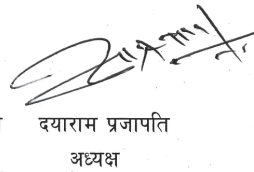 दयाराम प्रजापति
अध्यक्ष